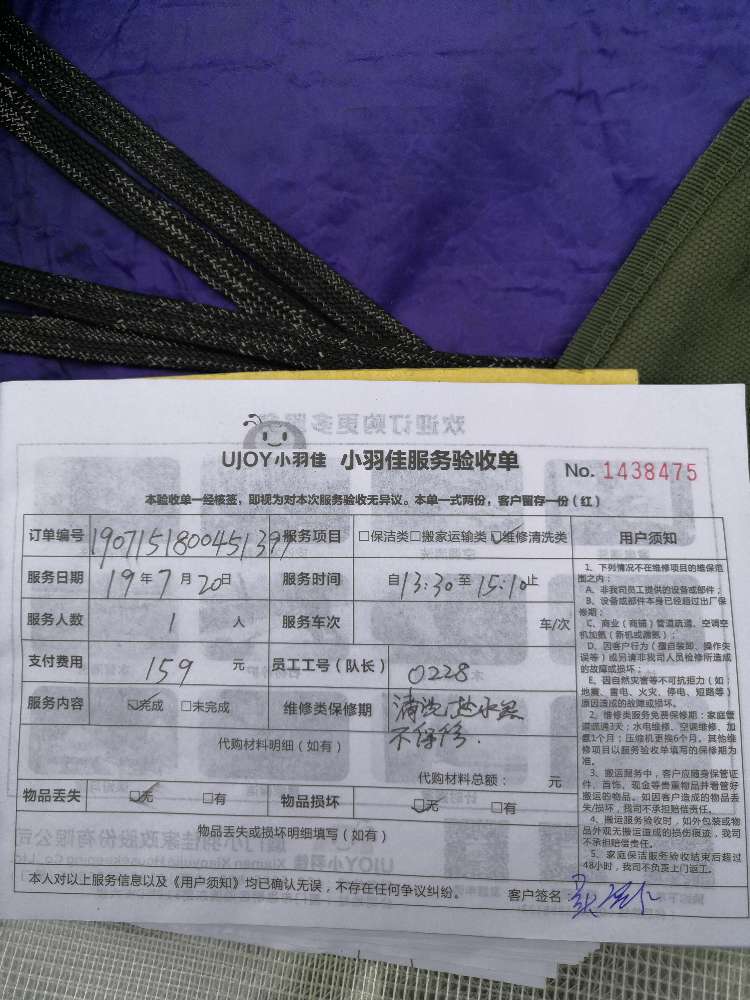 欢迎订购更多服务
UJOY小羽佳 小羽佳服务验收单 No. 1438475
本验收单一经核签，即视为对本次服务验收无异议。本单一式两份，客户留存一份（红）
订单编号 1907151800451397 服务项目 □保洁类 □搬家运输类 ☑维修清洗类
服务日期 19年7月20日 服务时间 自13:30至15:10止
服务人数 1 人 服务车次 车/次
支付费用 159 元 员工工号（队长） 0228
服务内容 ☑完成 □未完成 维修类保修期 清洗 热水器
不保修.
代购材料明细（如有）
代购材料总额： 元
物品丢失 ☑无 □有 物品损坏 ☑无 □有
物品丢失或损坏明细填写（如有）
本人对以上服务信息以及《用户须知》均已确认无误，不存在任何争议纠纷。 客户签名：
用户须知
1、下列情况不在维修项目的维保范
围之内：
A、非我司员工提供的设备或部件；
B、设备或部件本身已经超过出厂保
修期；
C、商业（商铺）管道疏通、空调空
机加氨（新机或漏氨）；
D、因客户行为（擅自装卸、操作失
误等）或另请非我司人员检修所造成
的故障或损坏；
E、因自然灾害等不可抗拒力（如：
地震、雷电、火灾、停电、短路等）
原因造成的故障或损坏。
2、维修类服务免费保修期：家庭管
道疏通3天；水电维修、空调维修、加
氨1个月；压缩机更换6个月。其他维
修项目以服务验收单填写的保修期为
准。
3、搬运服务中，客户应随身保管证
件、首饰、现金等贵重物品并看管好
搬运的物品。如因客户造成的物品丢
失/损坏，我司不承担赔偿责任。
4、搬运服务验收时，如外包装或物
品外观无搬运造成的损伤痕迹，我司
不承担赔偿责任。
5、家庭保洁服务验收结束后超过
48小时，我司不负责上门返工。